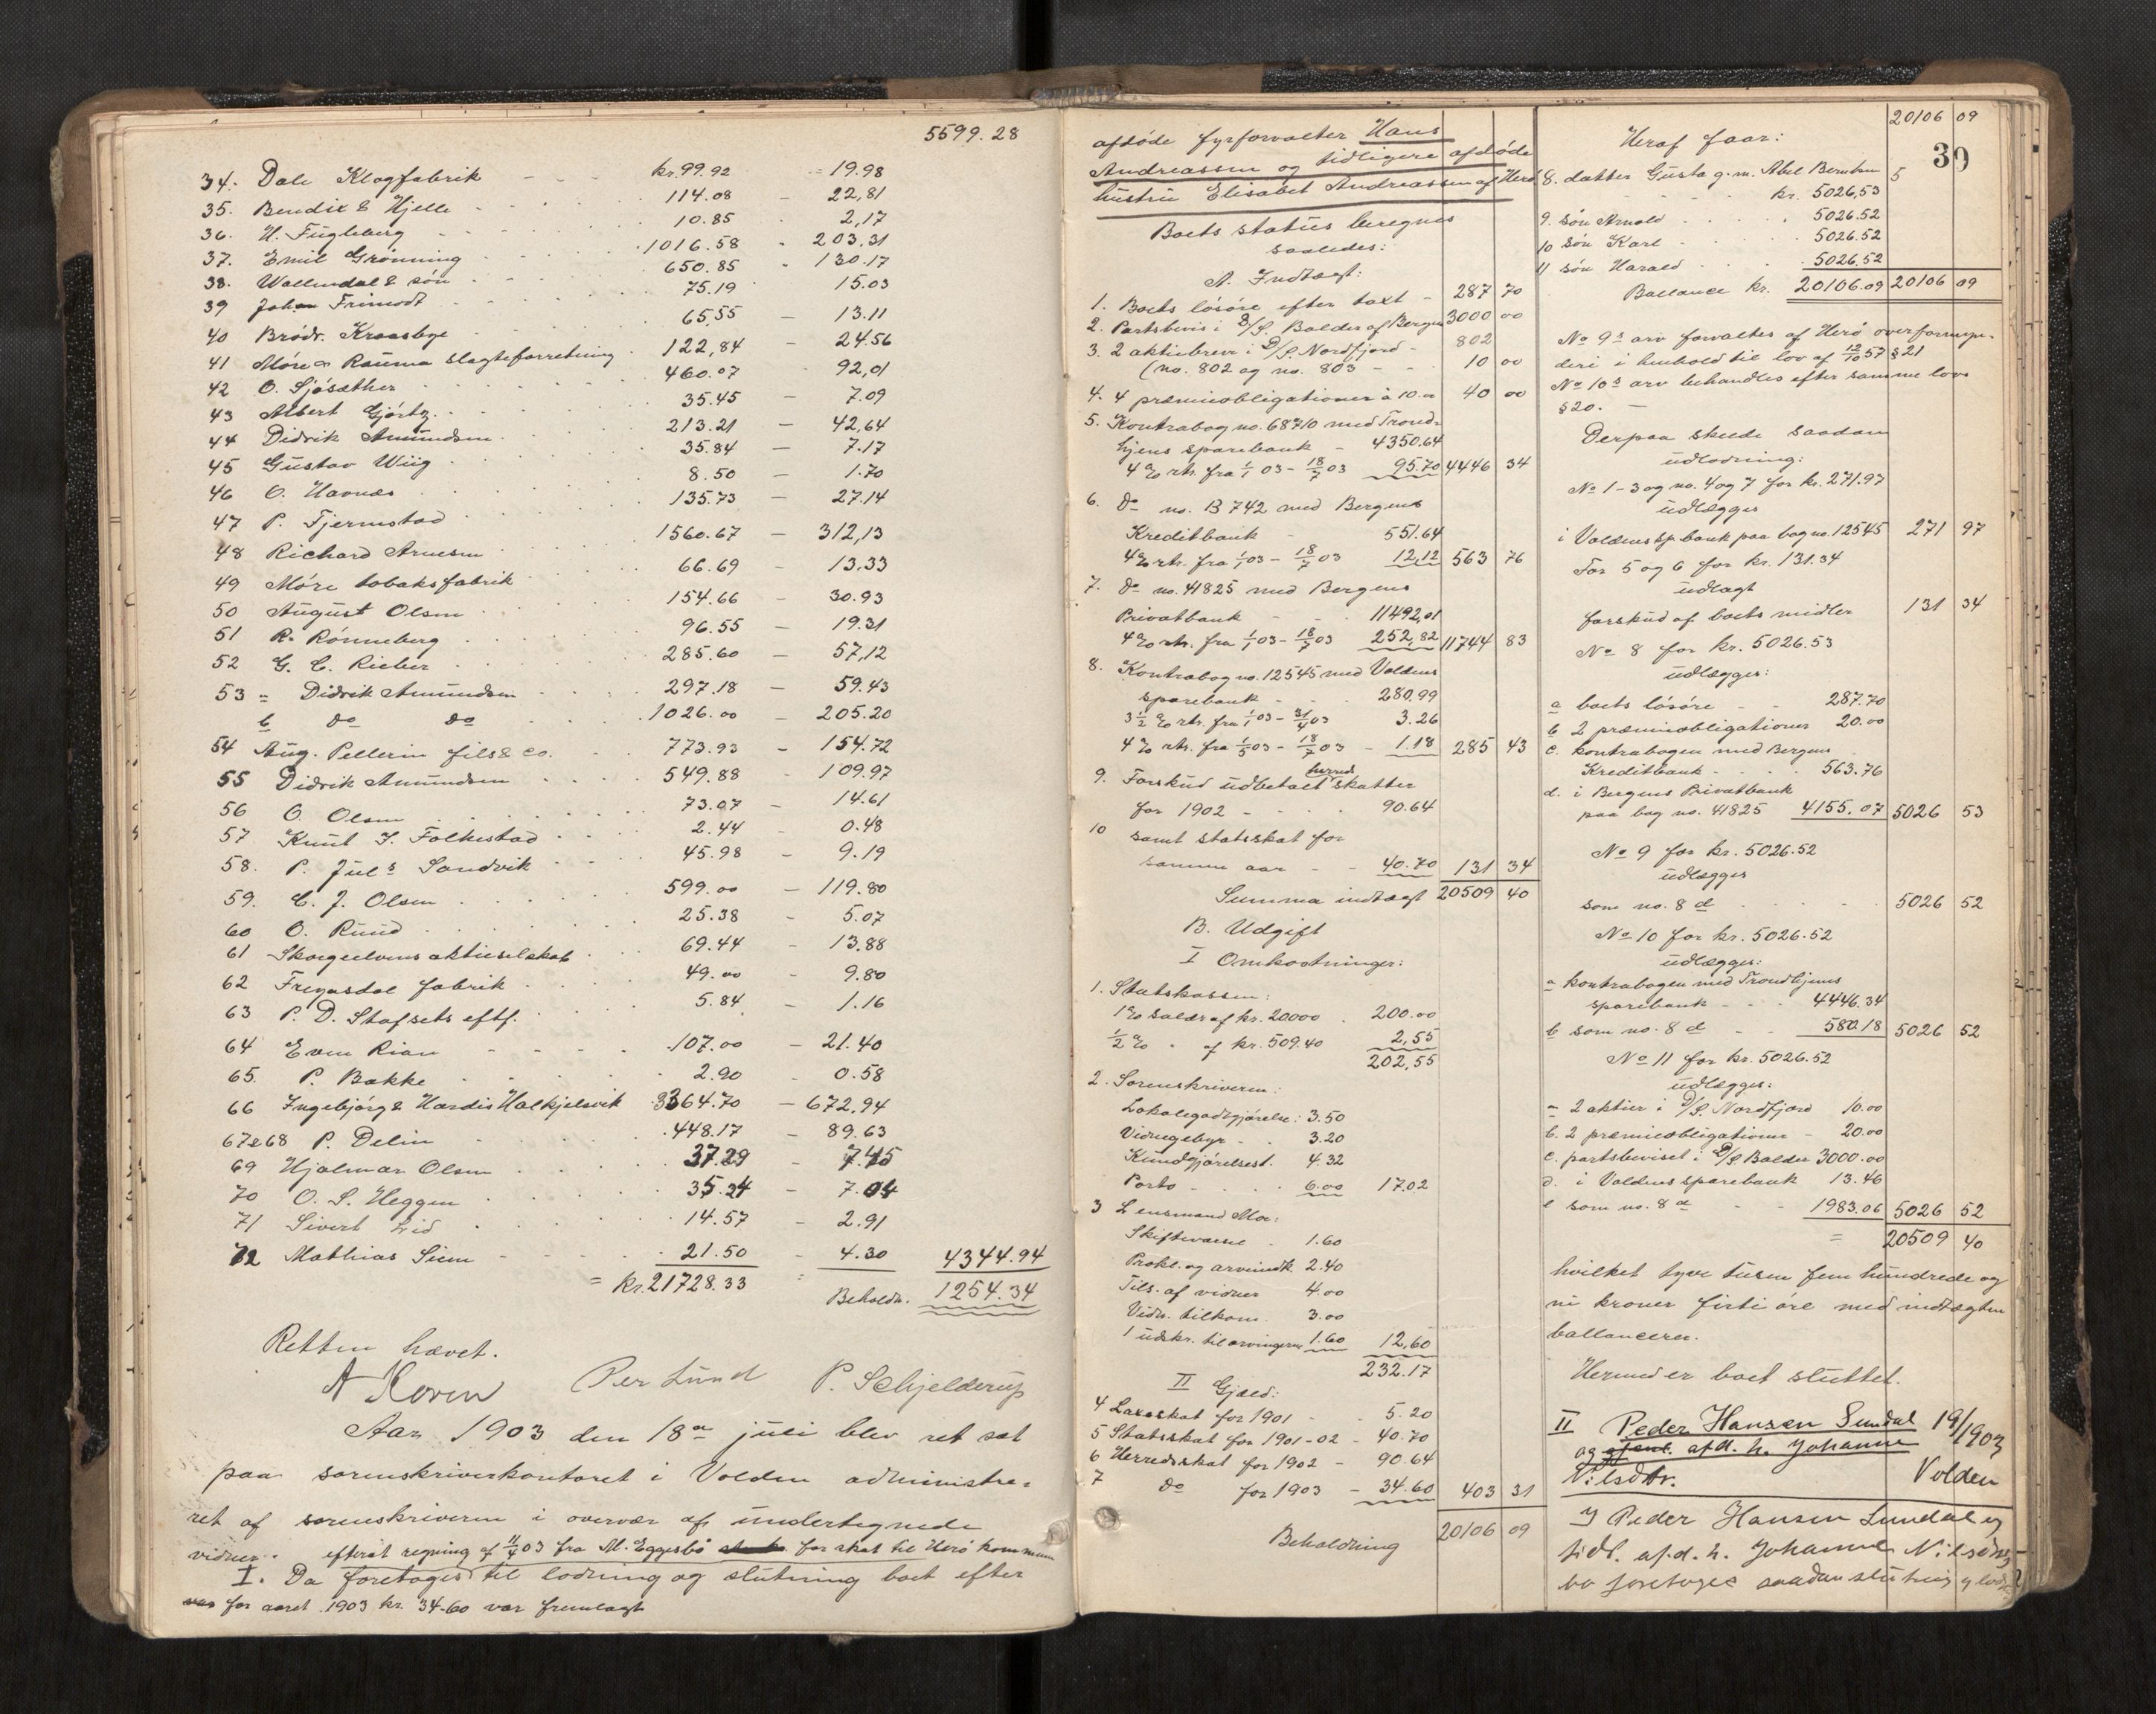 5599.28
34. Dale Klægfabrik - - - kr. 99.92 = 19.98
35. Bendix & Hjelle 114.08 - 22,81
36. H. Fugleberg 10.85 2,17
37. Emil Grønning 1016.58 - 203.31
38. Wallendal & søn 650.85 - 130.17
39 Johan Frimodt 75.19 15.03
40 Brødr. Kraasbye 65,55 - 13.11
41 Møre & Rauma slagteforretning 122,84 - 24.56
42 O. Sjøsæther 460.07 92,01
43 Albert Gjørtz 35.45 - 7.09
44 Didrik Amundsen 213.21 - 42,64
45 Gustav Wiig 35.84 - 7.17
46 O. Havnæs 8.50 - 1.70
47 P. Fjermstad 135.73 - 27.14
48 Richard Arnesen 1560.67 - 312,13
49 Møre tobaksfabrik 66.69 - 13.33
50 August Olsen 154.66 - 30.93
51 R. Rønneberg 96.55 - 19.31
52 G. C. Rieber 285.60 - 57,12
53 a Didrik Amundsen 297.18 - 59.43
b do do 1026.00 - 205.20
54 Aug. Pellerin fils & Co. 773.93 - 154.72
55 Didrik Amundsen 549.88 - 109.97
56 O. Olsen 73.07 - 14.61
57 Knut J. Folkestad 2.44 0.48
58. P. Juls Sandvik 45.98 - 9.19
59. C. J. Olsen 599.00 - 119.80
60 O. Ruud 25.38 - 5.07
61 Skorgeelvens aktieselskab 69.44 - 13.88
62 Fregnsdal fabrik 49.00 - 9.80
63 P. D. Stafsets eftf. 5.84 - 1.16
64 Even Rian 107.00 - 21.40
65. P. Bakke 2.90 - 0.58
66 Ingebjørg & Hardis Halkjelsvik 3364.70 - 672,94
67 & 68 P. Delin 448.17 - 89.63
69 Hjalmar Olsen 37.29 - 7.45
70 O. S. Heggen 35.24 - 7.04
71 Sivert Lid 14.57 - 2.91
72 Mathias Siem 21.50 - 4.30 4344.94
= kr. 21728.33 = Beholdn. 1254.34
Retten hævet.
A Koren Per Lund P. Schjelderup
Aar 1903 den 18de juli blev ret sat
paa sorenskriverkontoret i Volden administre-
ret af sorenskriveren i overvær af undertegnede
vidner. efterat regning af 11/4 03 fra M. Eggesbø for skat til Herø kommune
I. Da foretoges til lodning og slutning boet efter
for aaret 1903 kr. 34-60 var fremlagt
afdøde fyrforvalter Hans
Andreassen og tidligere afdøde
hustru Elisabet Andreassen af Herø
Boets status beregnes
saaledes:
A. Indtægt:
1. Boets løsøre efter taxt - 287 70
2. Partsbevis i D/S. Balder af Bergen 3000 00
3. 2 aktiebreve i D/S. Nordfjord - 802
(no. 802 og no. 803 - - 10 00
4. 4 præmieobligationer à 10.00 40 00
5. Kontrabog no. 68710 med Trond-
hjems sparebank - 4350.64
4 % rtr. fra 1/1 03 - 18/7 03 95.70 4446 34
6. do no. B 742 med Bergens
Kreditbank - 551.64
4 % rtr. fra 1/1 03 - 18/7 03 12,12 563 76
7. do no. 41825 med Bergens
Privatbank - - 11492,01
4 % rtr. fra 1/1 03 - 18/7 03 252,82 11744 83
8. Kontrabog no. 12545 med Voldens
sparebank - - 280,99
3 1/2 % rtr. fra 1/1 03 - 31/4 03 3.26
4 % rtr. fra 1/5 03 - 18/7 03 - 1.18 285 43
herred
9. Forskud udbetalt skatter
for 1902 - - - 90.64
10 samt statsskat for
samme aar - - 40.70 131 34
Summa indtægt 20509 40
B. Udgift
I Omkostninger:
1. Statskassen:
1 % saldo af kr. 20000 . 200.00
1/2 % " af kr. 509.40 2,55
202,55
2. Sorenskriveren:
Lokalegodtgjørelse: 3.50
Vidnegebyr - . 3.20
Kundgjørelsest. 4.32
Porto - . . . 6.00 17.02
3 Lensmand Moe:
Skiftevarsel . 1.60
Prokl. og arveindk. 2.40
Tils. af vidner 4.00
Vidn. tilkom. 3.00
1 udskr. til arvingerne 1.60 12,60
232.17
II Gjæld:
4 Lægeskat for 1901 - . 5.20
5 Statsskat for 1901-02 - 40.70
6 Herredsskat for 1902 - 90.64
7 do for 1903 - 34.60 403 31
Beholdning 20106 09
20106 09
39
Heraf faar:
8. datter Gusta g. m. Abel Berntsen 5
kr. 5026,53
9. søn Arnold . . . 5026.52
10 søn Karl . . . 5026.52
11 søn Harald . . . 5026.52
Ballance kr. 20106.09 20106 09
No 9s arv forvaltes af Herø overformyn-
deri i henhold til lov af 12/10 57 § 21
No 10s arv behandles efter samme lovs
§ 20. -
Derpaa skede saadan
udlodning:
No 1-3 og no. 4 og 7 for kr. 271.97
udlægges
i Voldens sp. bank paa bog no. 12545 271 97
For 5 og 6 for kr. 131.34
udlagt
forskud af boets midler 131 34
No 8 for kr. 5026.53
udlægges:
a boets løsøre - - 287.70
b 2 præmieobligationer 20.00
c. kontrabogen med Bergens
Kreditbank - - - . 563.76
d. i Bergens Privatbank
paa bog no. 41825 4155.07 5026 53
No 9 for kr. 5026.52
udlægges
som no. 8 d . . . . . 5026 52
No 10 for kr. 5026.52
udlægges:
a kontrabogen med Trondhjems
sparebank - - - 4446.34
b som no. 8 d - - 580.18 5026 52
No 11 for kr. 5026.52
udlægges:
a 2 aktier i D/S. Nordfjord 10.00
b. 2 præmieobligationer - 20.00
c. partsbeviset i D/S Balder 3000.00
d. i Voldens sparebank 13.46
e som no. 8 d - - 1983.06 5026 52
= 20509 40
hvilket tyve tusen fem hundrede og
ni kroner firti øre med indtægten
ballancerer.
Hermed er boet sluttet.
II Peder Hansen Sundal 19/1903
og afd. h. Johanne
Nilsdtr. Volden
I Peder Hansen Sundal og
tidl. afd. h. Johanne Nilsdtrs
bo foretoges saadan slutning og lodn.